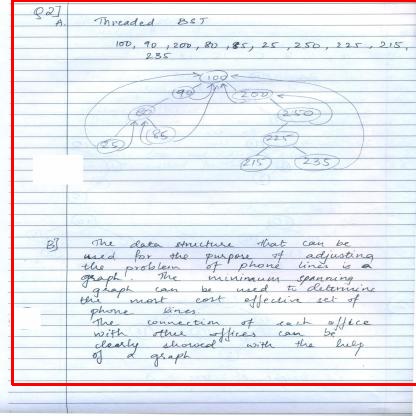 Q2]
A. Threaded BST
100, 90, 200, 80, 85, 25, 250, 225, 215,
235
100
90
200
80
250
85
225
25
215
235
B] The data structure that can be
used for the purpose of adjusting
the problem of phone lines is a
graph. The minimum spanning
graph can be used to determine
the most cost effective set of
phone lines.
The connection of each office
with other offices can be
clearly showed with the help
of a graph